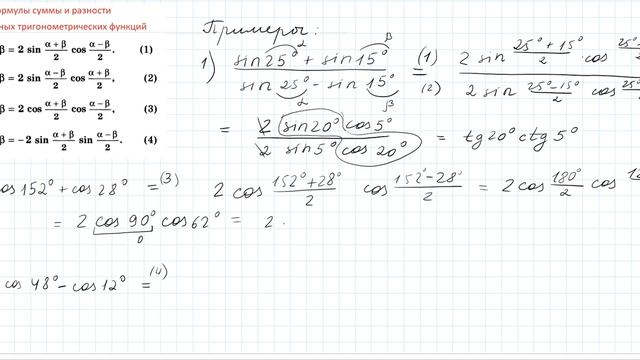 рмулы суммы и разности
ных тригонометрических функций
β = 2 sin (α+β)/2 cos (α−β)/2. (1)
β = 2 sin (α−β)/2 cos (α+β)/2, (2)
β = 2 cos (α+β)/2 cos (α−β)/2, (3)
β = −2 sin (α+β)/2 sin (α−β)/2. (4)
Примеры:
α β
1) (sin 25° + sin 15°)/(sin 25° − sin 15°) = (1) (2) (2 sin (25°+15°)/2 cos (25°)/(2 sin (25°−15°)/2 cos (25°
α β
= (2 sin 20° cos 5°)/(2 sin 5° cos 20°) = tg 20° ctg 5°
cos 152° + cos 28° =(3) 2 cos (152°+28°)/2 cos (152°−28°)/2 = 2 cos 180°/2 cos 12
= 2 cos 90° cos 62° = 2 ·
0
cos 48° − cos 12° =(4)